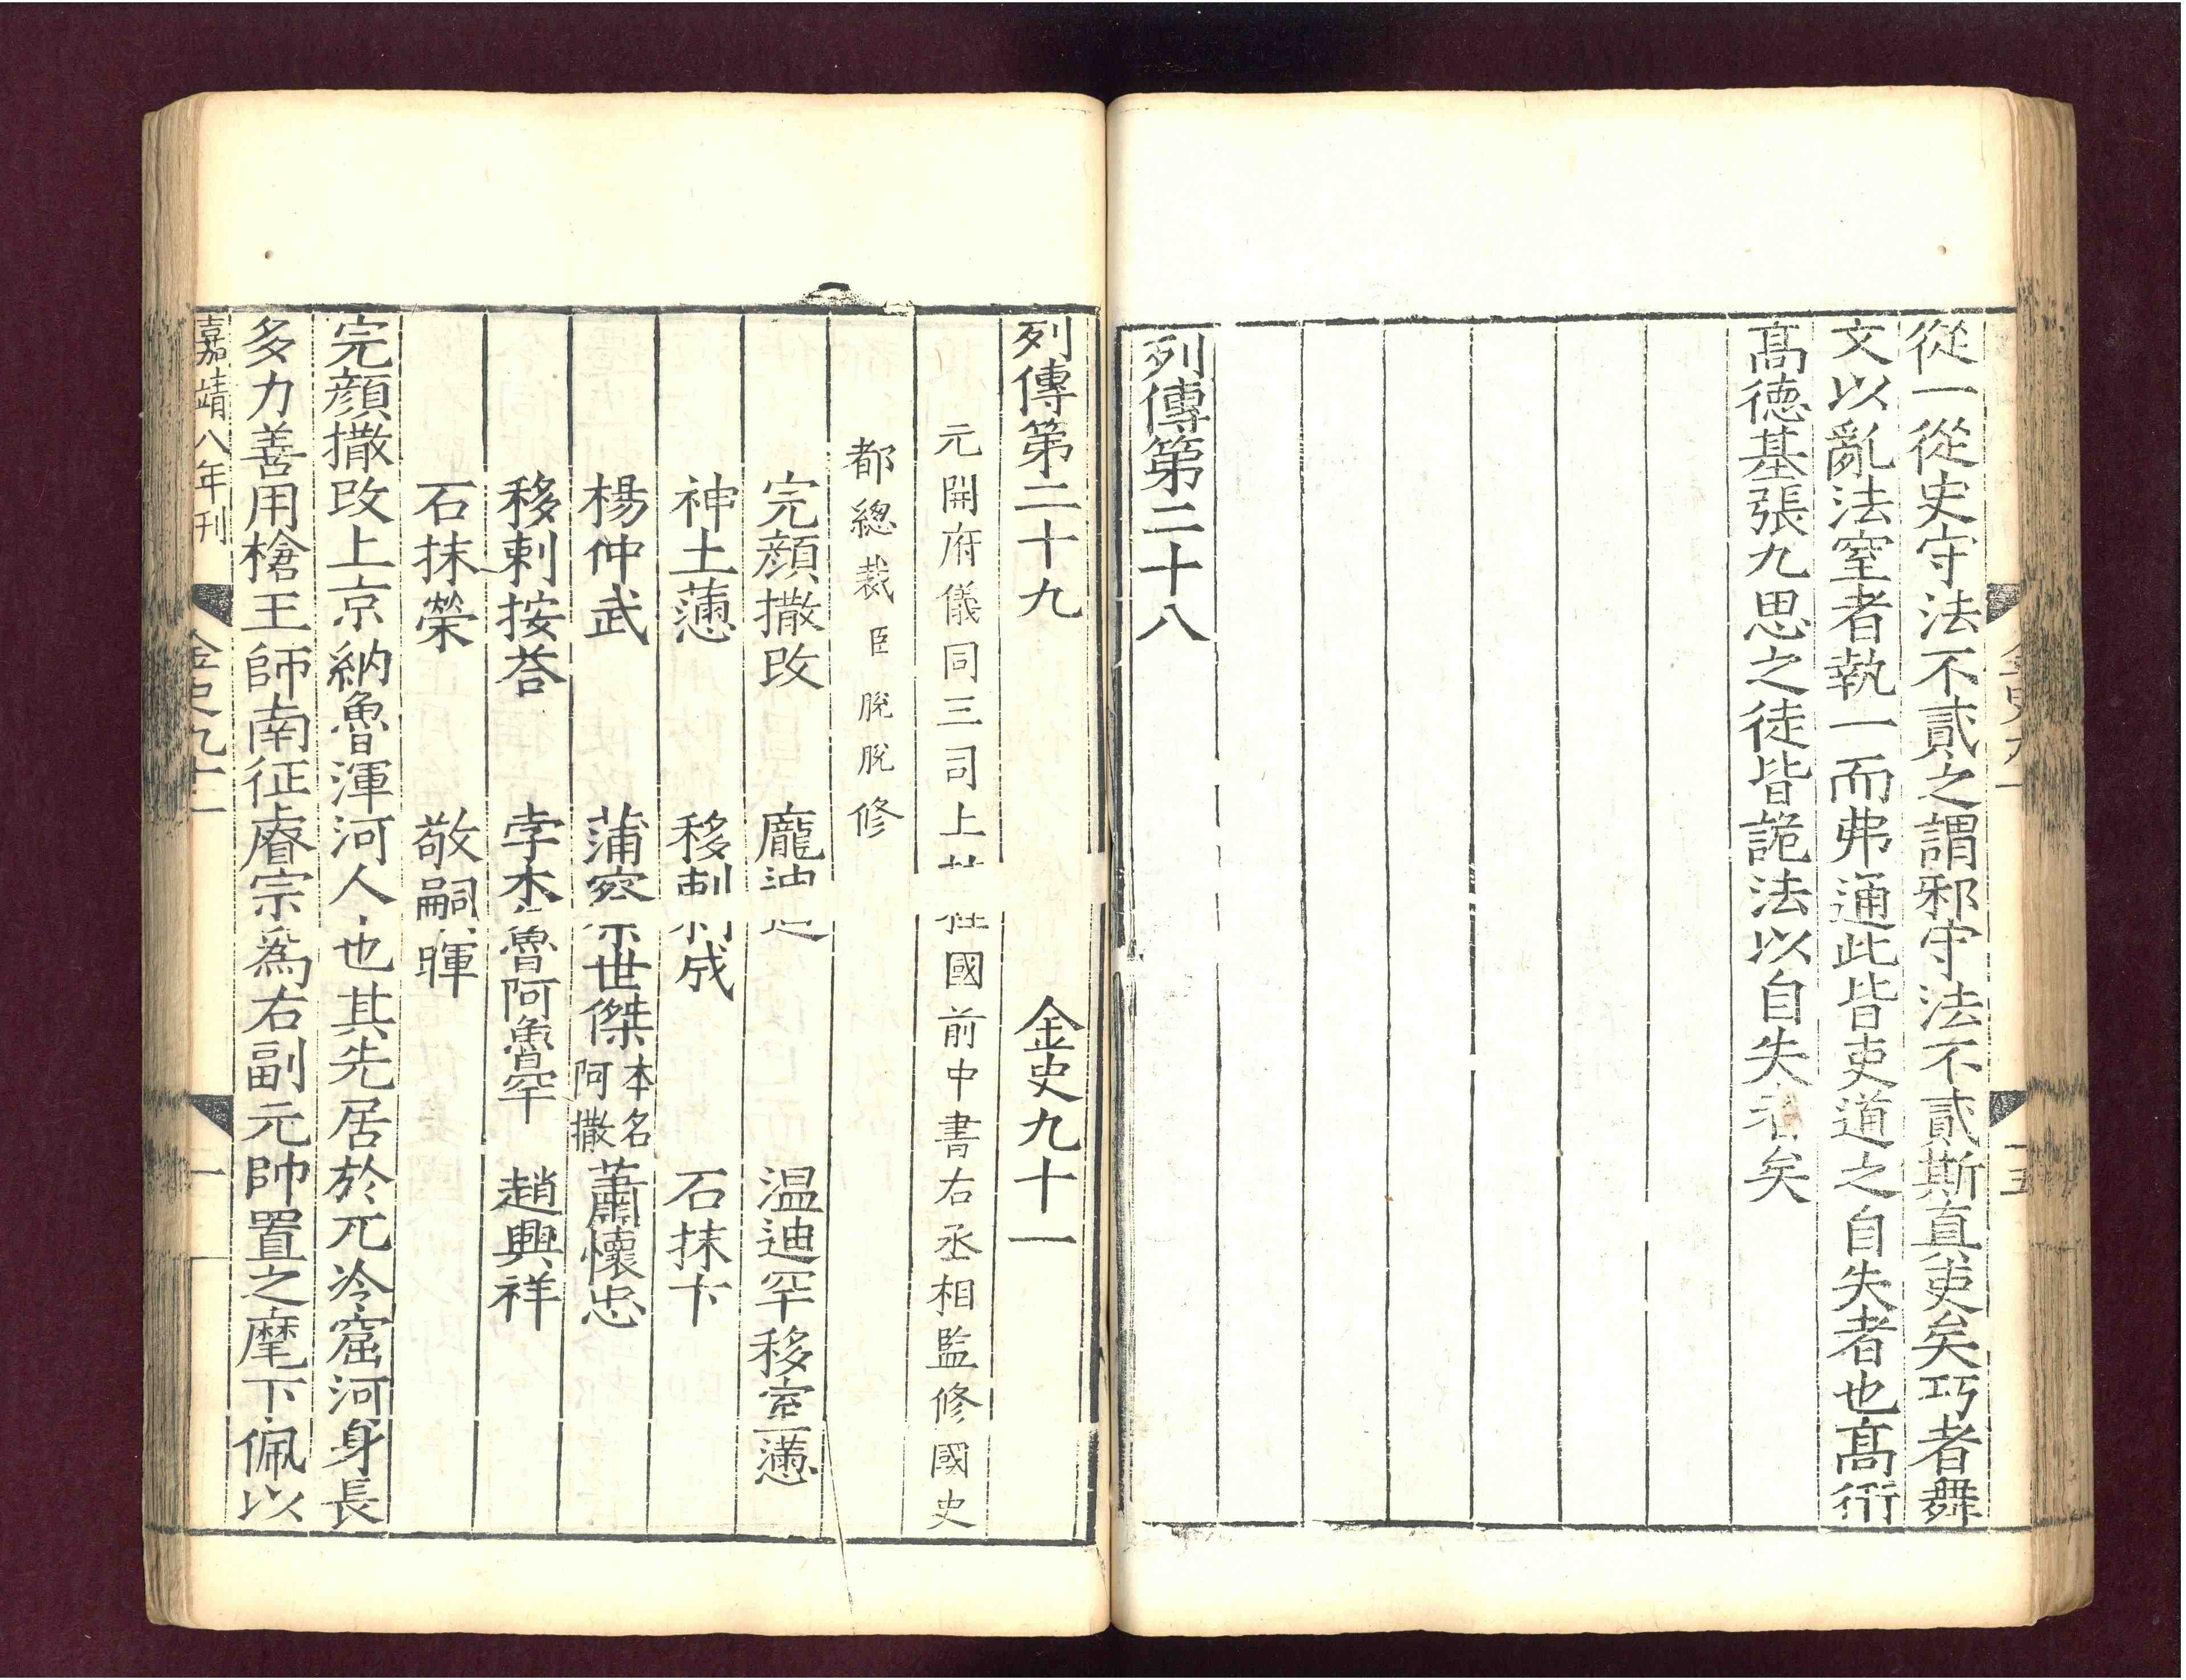 從一從史守法不貳之謂邪守法不貳斯真吏矣巧者舞
文以亂法窒者執一而弗通此皆吏道之自失者也髙衎
髙徳基張九思之徒皆詭法以自失者矣
列傳第二十八
列傳第二十九 金史九十一
元開府儀同三司上柱國前中書右丞相監修國史
都總裁臣脫脫修
完顔撒改 龐迪 温迪罕移室懣
神土懣 移剌成 石抹卞
楊仲武 蒲察世傑本名阿撒 蕭懷忠
移剌按荅 孛术魯阿魯罕 趙興祥
石抹榮 敬嗣暉
完顔撒改上京納魯渾河人也其先居於兀冷窟河身長
多力善用槍王師南征睿宗為右副元帥置之麾下佩以
嘉靖八年刊 金史九十一 一